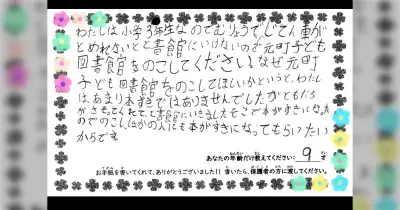 わたしは小学3年生なのでむりょうでじてん車が
とめれないとと書館にいけないので元町子ども
図書館をのこしてください。なぜ元町
子ども図書館をのこしてほしいかというと、わたし
はあまり本ずきではありませんでしたがともだち
がさそってくれて、と書館にいきましたそこで本がすきになった
のでのこしほかの人にも本がすきになってもらいたい
からです
あなたの年齢だけ教えてください: 9 才
お手紙を書いてくれて、ありがとうございました!! 書いたら、保護者の方に渡してください。